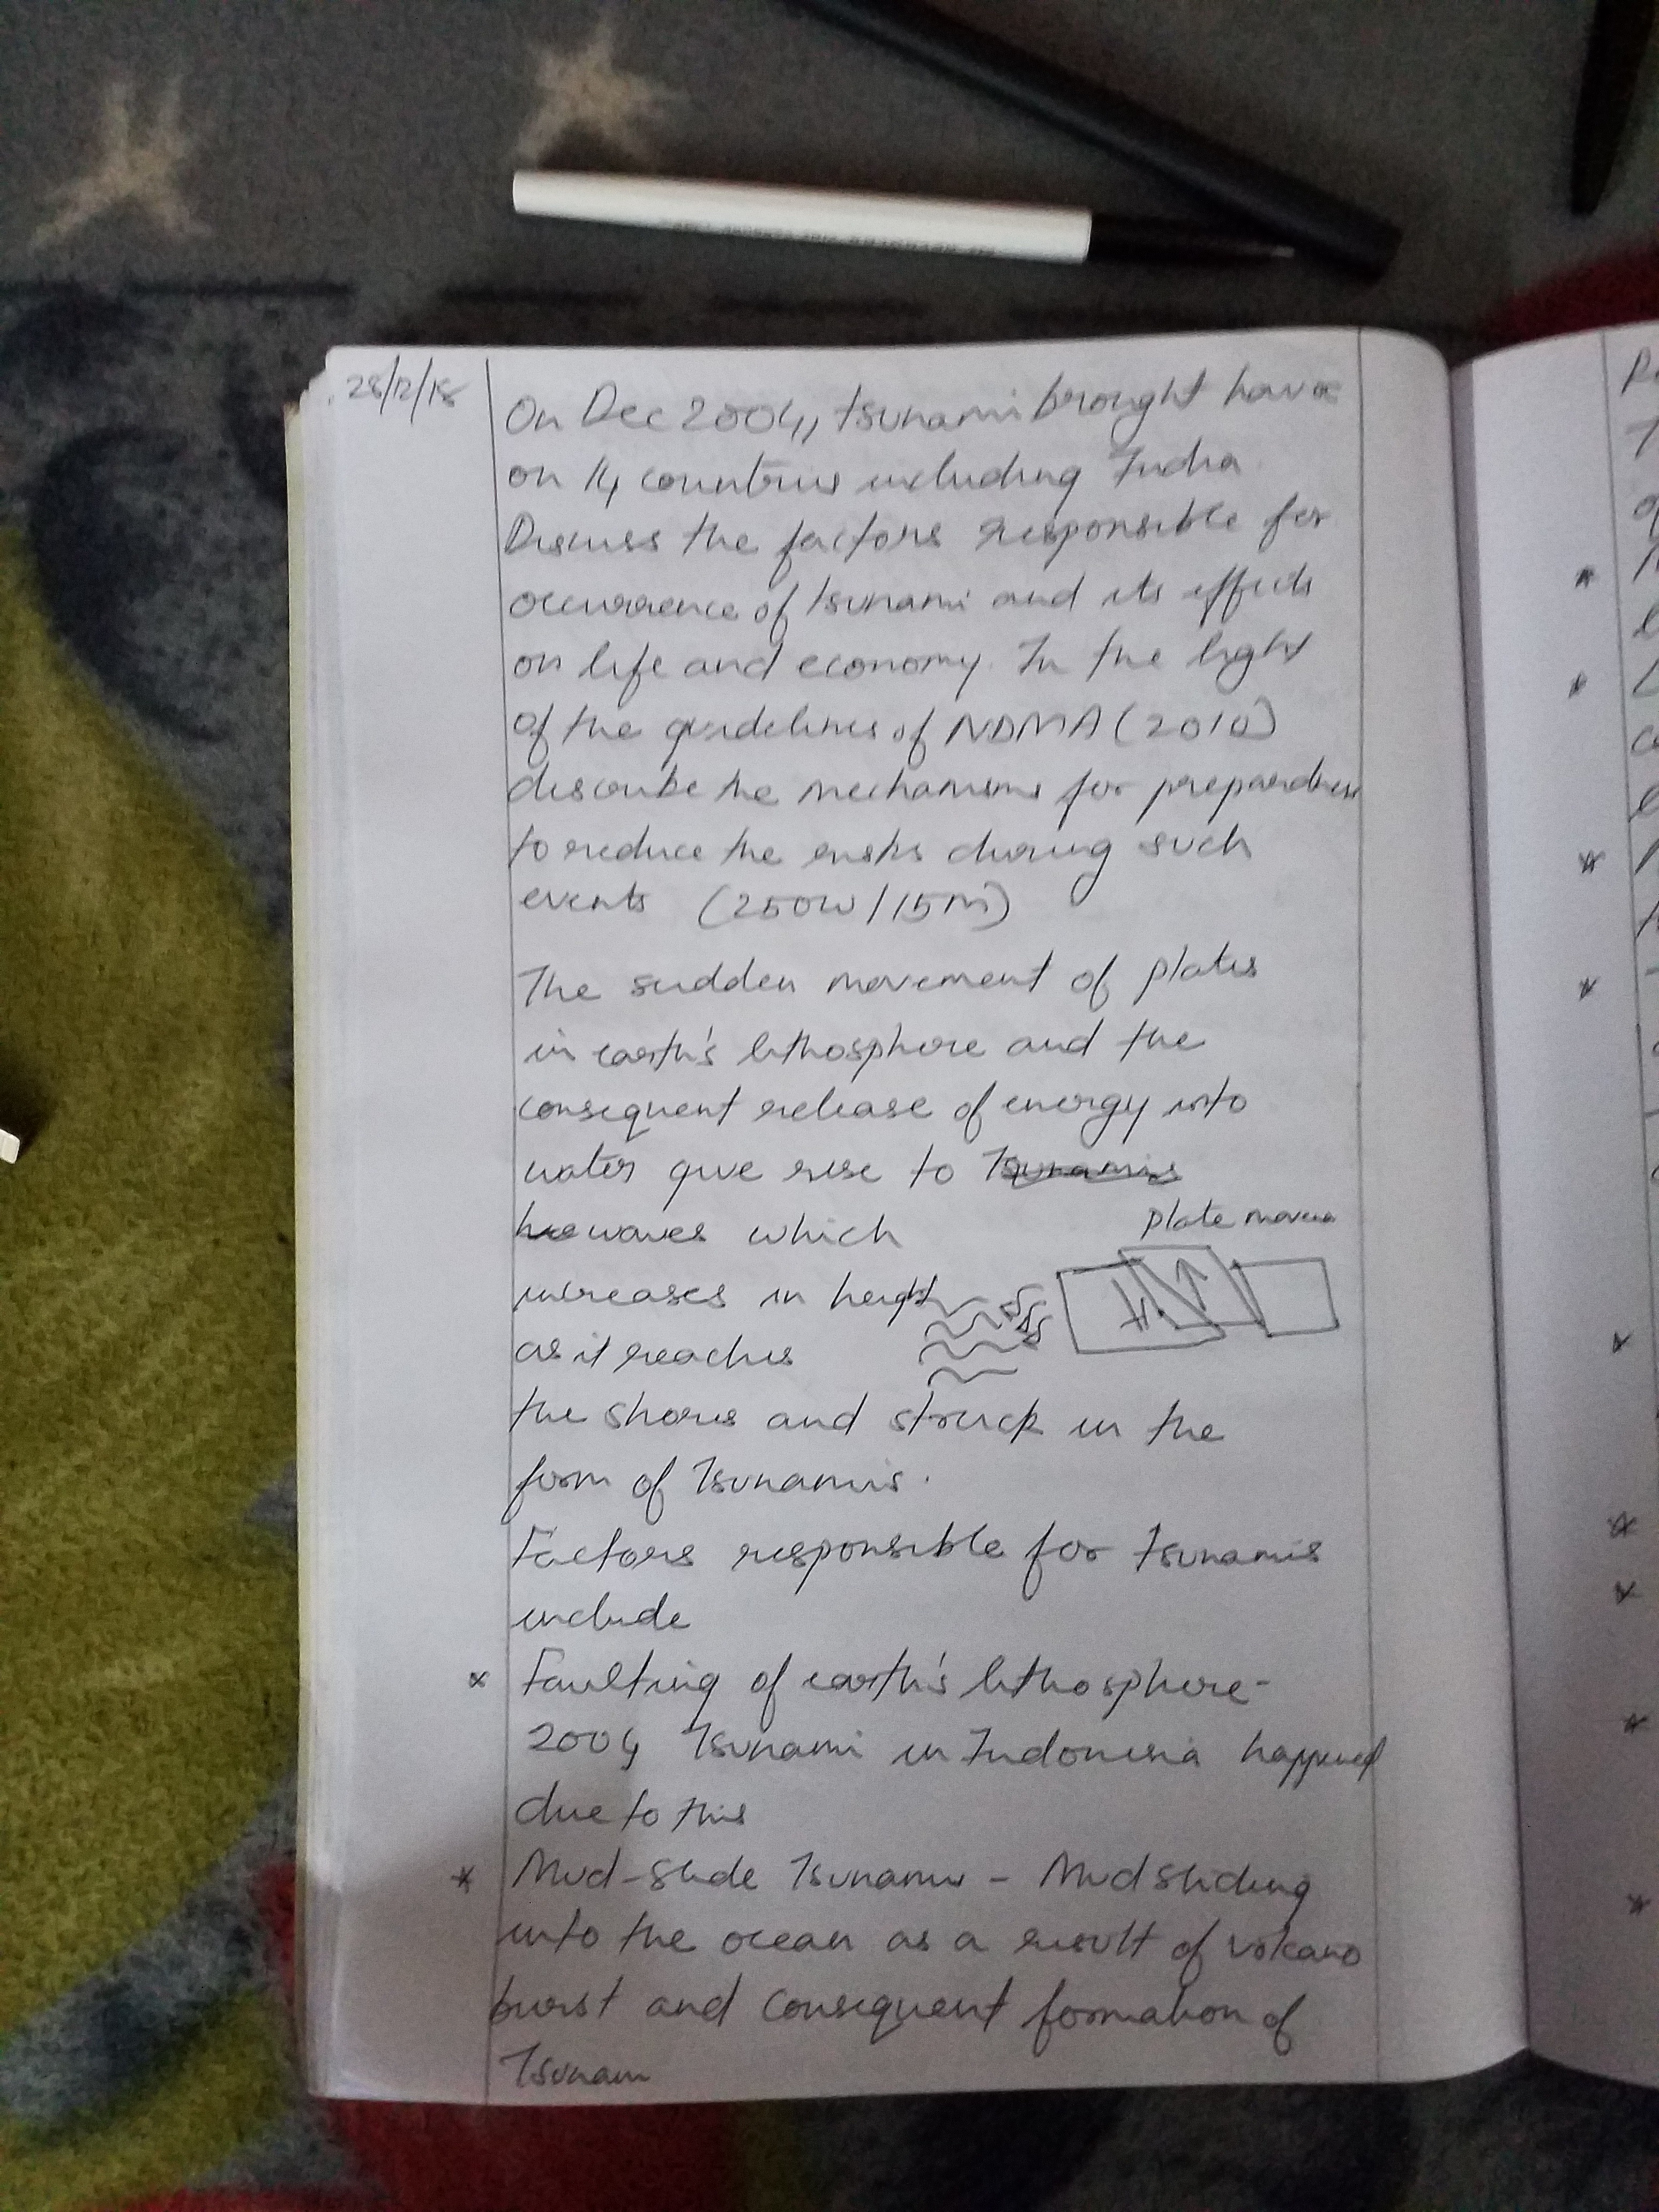 28/12/18
On Dec 2004, tsunami brought havoc
on 14 countries including India.
Discuss the factors responsible for
occurrence of tsunami and its effects
on life and economy. In the light
of the guidelines of NDMA (2010)
describe the mechanisms for preparedness
to reduce the risks during such
events (250W/15M)
The sudden movement of plates
in earth's lithosphere and the
consequent release of energy into
water give rise to Tsunamis
waves which
plate move
increases in height
as it reaches
the shores and struck in the
form of Tsunamis.
Factors responsible for tsunamis
include
* Faulting of earth's lithosphere-
2004 Tsunami in Indonesia happened
due to this
* Mud-slide Tsunamis - Mud sliding
into the ocean as a result of volcano
burst and consequent formation of
Tsunam